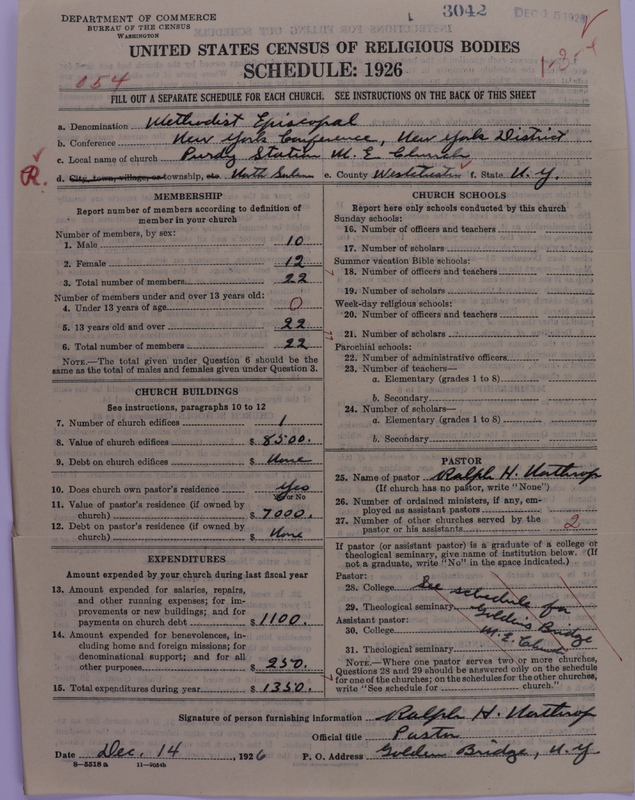 DEPARTMENT OF COMMERCE
BUREAU OF THE CENSUS
WASHINGTON
3042
DEC 15 1926
UNITED STATES CENSUS OF RELIGIOUS BODIES
SCHEDULE: 1926
054
FILL OUT A SEPARATE SCHEDULE FOR EACH CHURCH. SEE INSTRUCTIONS ON THE BACK OF THIS SHEET
a. Denomination Methodist Episcopal
b. Conference New York Conference, New York District
c. Local name of church Purdy Station M. E. Church
R.
d. City, town, village, or township, etc. North Salem e. County Westchester f. State N. Y.
MEMBERSHIP
Report number of members according to definition of
member in your church
Number of members, by sex:
1. Male 10
2. Female 12
3. Total number of members 22
Number of members under and over 13 years old:
4. Under 13 years of age 0
5. 13 years old and over 22
6. Total number of members 22
NOTE.—The total given under Question 6 should be
same as the total of males and females given under Question 3.
CHURCH BUILDINGS
See instructions, paragraphs 10 to 12
7. Number of church edifices 1
8. Value of church edifices $ 8500.
9. Debt on church edifices $ None
10. Does church own pastor's residence Yes
Yes or No
11. Value of pastor's residence (if owned by
church) $ 7000.
12. Debt on pastor's residence (if owned by
church) $ None
EXPENDITURES
Amount expended by your church during last fiscal year
13. Amount expended for salaries, repairs,
and other running expenses; for im-
provements or new buildings; and for
payments on church debt $ 1100.
14. Amount expended for benevolences, in-
cluding home and foreign missions; for
denominational support; and for all
other purposes $ 250.
15. Total expenditures during year $ 1350.
CHURCH SCHOOLS
Report here only schools conducted by this church
Sunday schools:
16. Number of officers and teachers
17. Number of scholars
Summer vacation Bible schools:
18. Number of officers and teachers
19. Number of scholars
Week-day religious schools:
20. Number of officers and teachers
21. Number of scholars
Parochial schools:
22. Number of administrative officers
23. Number of teachers—
a. Elementary (grades 1 to 8)
b. Secondary
24. Number of scholars—
a. Elementary (grades 1 to 8)
b. Secondary
PASTOR
25. Name of pastor Ralph H. Northrop
(If church has no pastor, write "None")
26. Number of ordained ministers, if any, em-
ployed as assistant pastors
27. Number of other churches served by the
pastor or his assistants 2
If pastor (or assistant pastor) is a graduate of a college or
theological seminary, give name of institution below. (If
not a graduate, write "No" in the space indicated.)
Pastor:
28. College See schedule for
29. Theological seminary Goldens Bridge
Assistant pastor:
30. College M. E. Church
31. Theological seminary
NOTE.—Where one pastor serves two or more churches,
Questions 28 and 29 should be answered only on the schedule
for one of the churches; on the schedules for the other churches,
write "See schedule for church."
Signature of person furnishing information Ralph H. Northrop
Official title Pastor
Date Dec. 14, 1926 P. O. Address Golden Bridge, N. Y.
8—5518 a 11—9054b